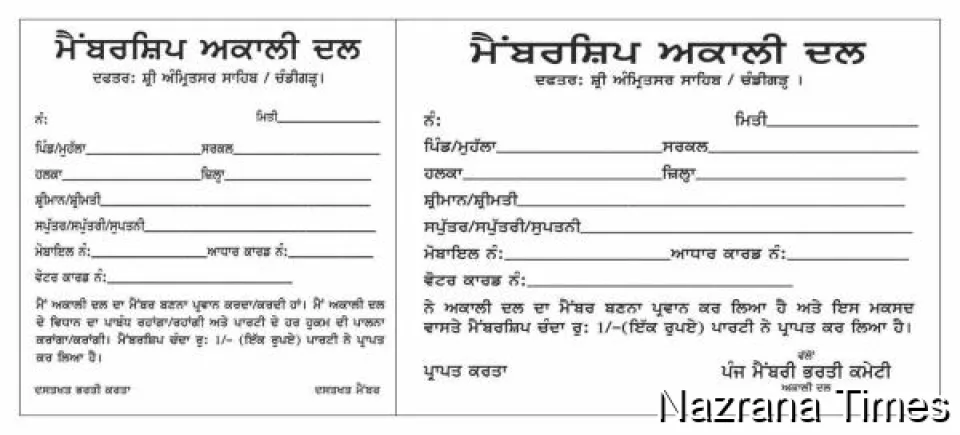 ਮੈਂਬਰਸ਼ਿਪ ਅਕਾਲੀ ਦਲ
ਦਫਤਰ: ਸ਼੍ਰੀ ਅੰਮ੍ਰਿਤਸਰ ਸਾਹਿਬ / ਚੰਡੀਗੜ੍ਹ।
ਨੰ: ਮਿਤੀ
ਪਿੰਡ/ਮੁਹੱਲਾ ਸਰਕਲ
ਹਲਕਾ ਜ਼ਿਲ੍ਹਾ
ਸ਼੍ਰੀਮਾਨ/ਸ਼੍ਰੀਮਤੀ
ਸਪੁੱਤਰ/ਸਪੁੱਤਰੀ/ਸੁਪਤਨੀ
ਮੋਬਾਇਲ ਨੰ: ਆਧਾਰ ਕਾਰਡ ਨੰ:
ਵੋਟਰ ਕਾਰਡ ਨੰ:
ਮੈਂ ਅਕਾਲੀ ਦਲ ਦਾ ਮੈਂਬਰ ਬਣਨਾ ਪ੍ਰਵਾਨ ਕਰਦਾ/ਕਰਦੀ ਹਾਂ। ਮੈਂ ਅਕਾਲੀ ਦਲ
ਦੇ ਵਿਧਾਨ ਦਾ ਪਾਬੰਧ ਰਹਾਂਗਾ/ਰਹਾਂਗੀ ਅਤੇ ਪਾਰਟੀ ਦੇ ਹਰ ਹੁਕਮ ਦੀ ਪਾਲਨਾ
ਕਰਾਂਗਾ/ਕਰਾਂਗੀ। ਮੈਂਬਰਸ਼ਿਪ ਚੰਦਾ ਰੁ: 1/- (ਇੱਕ ਰੁਪਏ) ਪਾਰਟੀ ਨੇ ਪ੍ਰਾਪਤ
ਕਰ ਲਿਆ ਹੈ।
ਦਸਤਖਤ ਭਰਤੀ ਕਰਤਾ ਦਸਤਖਤ ਮੈਂਬਰ
ਮੈਂਬਰਸ਼ਿਪ ਅਕਾਲੀ ਦਲ
ਦਫਤਰ: ਸ਼੍ਰੀ ਅੰਮ੍ਰਿਤਸਰ ਸਾਹਿਬ / ਚੰਡੀਗੜ੍ਹ ।
ਨੰ: ਮਿਤੀ
ਪਿੰਡ/ਮੁਹੱਲਾ ਸਰਕਲ
ਹਲਕਾ ਜ਼ਿਲ੍ਹਾ
ਸ਼੍ਰੀਮਾਨ/ਸ਼੍ਰੀਮਤੀ
ਸਪੁੱਤਰ/ਸਪੁੱਤਰੀ/ਸੁਪਤਨੀ
ਮੋਬਾਇਲ ਨੰ: ਆਧਾਰ ਕਾਰਡ ਨੰ:
ਵੋਟਰ ਕਾਰਡ ਨੰ:
ਨੇ ਅਕਾਲੀ ਦਲ ਦਾ ਮੈਂਬਰ ਬਣਨਾ ਪ੍ਰਵਾਨ ਕਰ ਲਿਆ ਹੈ ਅਤੇ ਇਸ ਮਕਸਦ
ਵਾਸਤੇ ਮੈਂਬਰਸ਼ਿਪ ਚੰਦਾ ਰੁ: 1/-(ਇੱਕ ਰੁਪਏ) ਪਾਰਟੀ ਨੇ ਪ੍ਰਾਪਤ ਕਰ ਲਿਆ ਹੈ।
ਵੱਲੋਂ
ਪ੍ਰਾਪਤ ਕਰਤਾ ਪੰਜ ਮੈਂਬਰੀ ਭਰਤੀ ਕਮੇਟੀ
ਅਕਾਲੀ ਦਲ
Nazrana Times